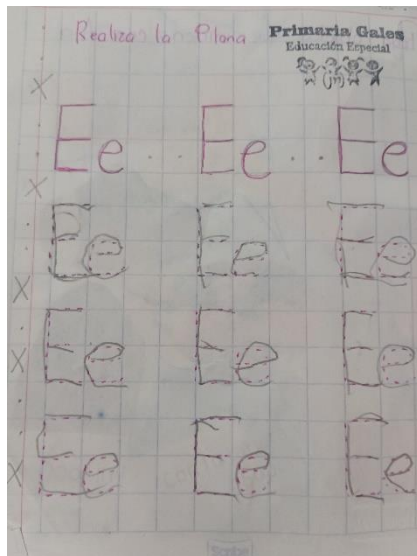 Realiza la Plana
Primaria Gales
Educación Especial
Ee . . Ee . . Ee
Ee Ee Ee
Ee Ee Ee
Ee Ee Ee
Scribe